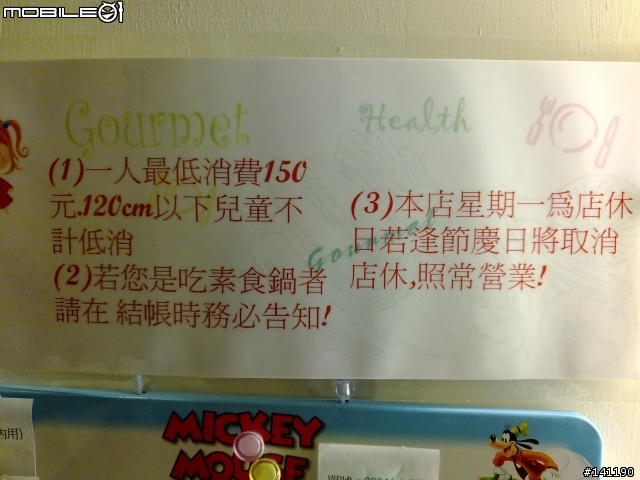 MOBILE01
Gourmet
Health
(1)一人最低消費150
元.120cm以下兒童不
計低消
(2)若您是吃素食鍋者
請在 結帳時務必告知!
(3)本店星期一為店休
日若逢節慶日將取消
店休,照常營業!
Gourmet
MICKEY
MOUSE
內用)
#141190